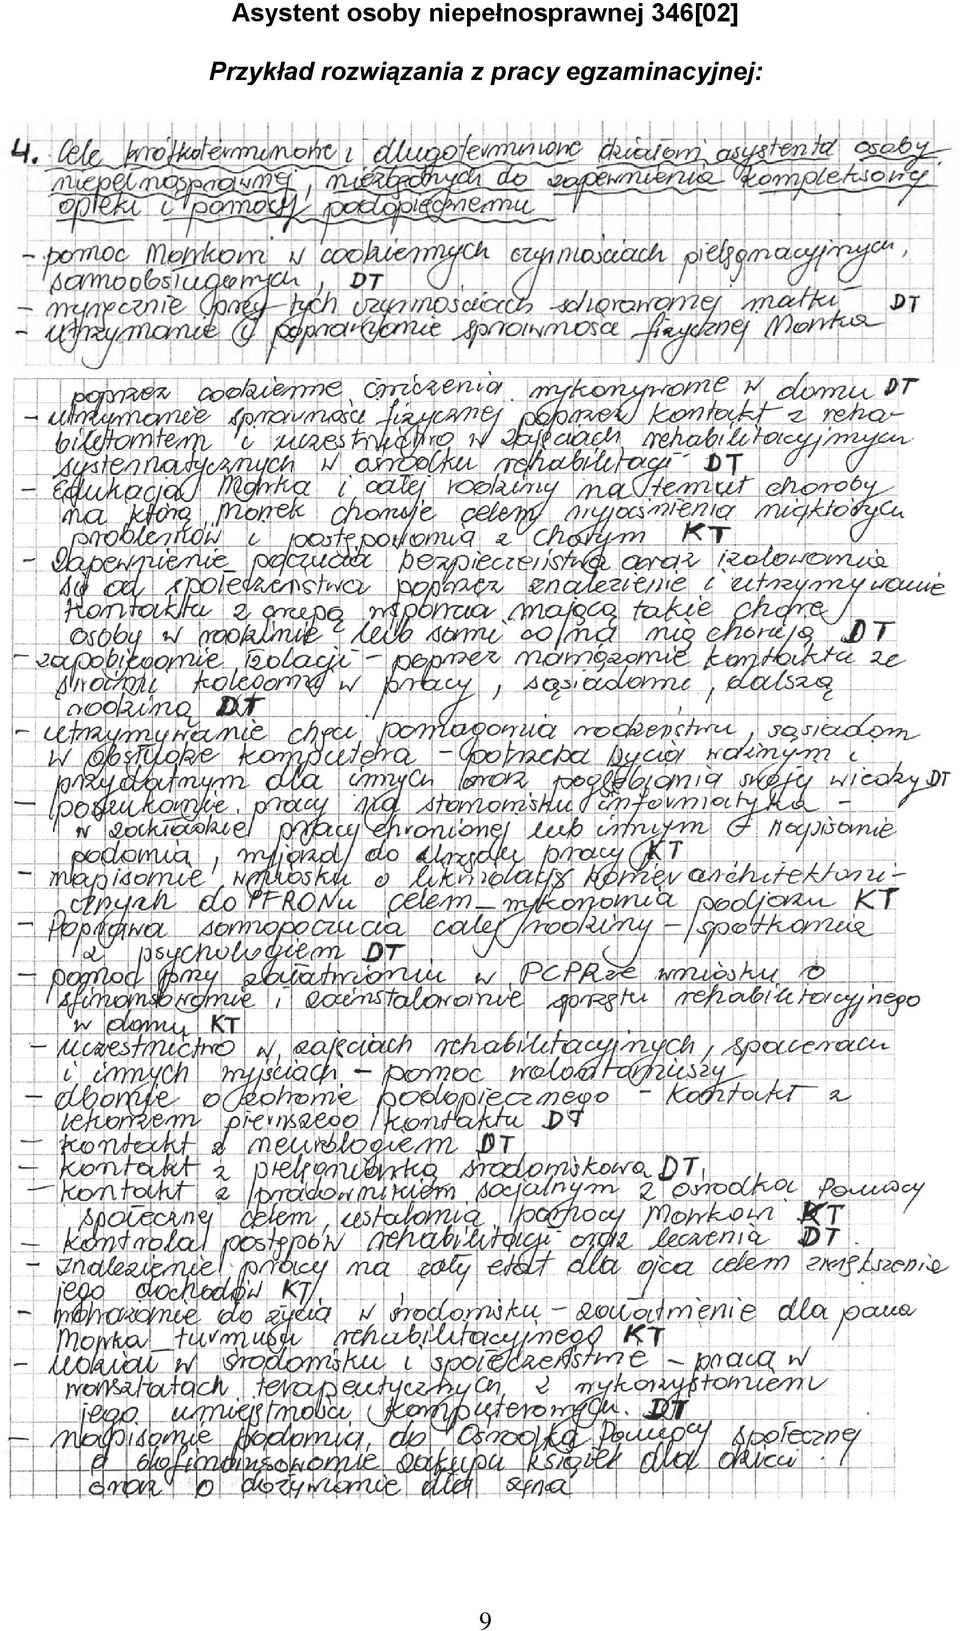 Asystent osoby niepełnosprawnej 346[02]
Przykład rozwiązania z pracy egzaminacyjnej:
4. Cele krótkoterminone i długoterminione działoń asystenta osoby
niepełnosprawnej, niezbędnych do zapewnienia kompleksowej
opieki i pomocy podopiecznemu
- pomoc Markowi w codziennych czynnościach pielęgnacyjnych,
samoobsługowych, DT
- wyręcznie przy tych czynnościach schorowanej matki DT
- utrzymanie i poprawianie sprawności fizycznej Marka
poprzez codzienne ćwiczenia wykonywane w domu DT
- utrzymanie sprawności fizycznej poprzez kontakt z reha-
bilitantem i uczestnictwo w zajęciach rehabilitacyjnych
systematycznych w ośrodku rehabilitacji DT
- Edukacja Marka i całej rodziny na temat choroby
na którą Marek choruje celem wyjaśnienia niektórych
problemów i postępowania z chorym KT
- Zapewnienie poczucia bezpieczeństwa oraz izolowania
się od społeczeństwa poprzez znalezienie i utrzymywanie
kontaktu z grupą wsparcia mającą takie chore
osoby w rodzinie lub sami co na nią chorują DT
- zapobieganie izolacji - poprzez nawiązanie kontaktu ze
swoimi kolegami w pracy, sąsiadami, dalszą
rodziną DT
- utrzymywanie chęci pomagania rodzeństwu, sąsiadom
w obsłudze komputera - potrzeba bycia ważnym i
przydatnym dla innych oraz pogłębiania swojej wiedzy DT
- poszukanie pracy na stanowisku informatyka -
w zakładzie pracy chronionej lub innym → napisanie
podania, wyjazd do Urzędu pracy KT
- napisanie wniosku o likwidację barier architektoni-
cznych do PFRONu celem wykonania podjazdu KT
- Poprawa samopoczucia całej rodziny - spotkanie
z psychologiem DT
- pomoc przy załatwianiu w PCPRze wniosku o
sfinansowanie i zainstalowanie sprzętu rehabilitacyjnego
w domu KT
- uczestnictwo w zajęciach rehabilitacyjnych, spacerach
i innych wyjściach - pomoc wolontariuszy
- dbanie o zdrowie podopiecznego - kontakt z
lekarzem pierwszego kontaktu DT
- kontakt z neurologiem DT
- kontakt z pielęgniarką środowiskową DT,
- kontakt z pracownikiem socjalnym z ośrodka Pomocy
społecznej celem ustalania pomocy Markowi KT
- kontrola postępów rehabilitacji oraz leczenia DT
- znalezienie pracy na cały etat dla ojca celem zwiększenia
jego dochodów KT,
- wdrażanie do życia w środowisku - załatwienie dla pana
Marka turnusu rehabilitacyjnego KT
- Udział w środowisku i społeczeństwie - praca w
warsztatach terapeutycznych z wykorzystaniem
jego umiejętności komputerowych. DT
- napisanie podania do Ośrodka Pomocy społecznej
o dofinansowanie zakupu książek dla dzieci
oraz o dożywianie dla syna
9